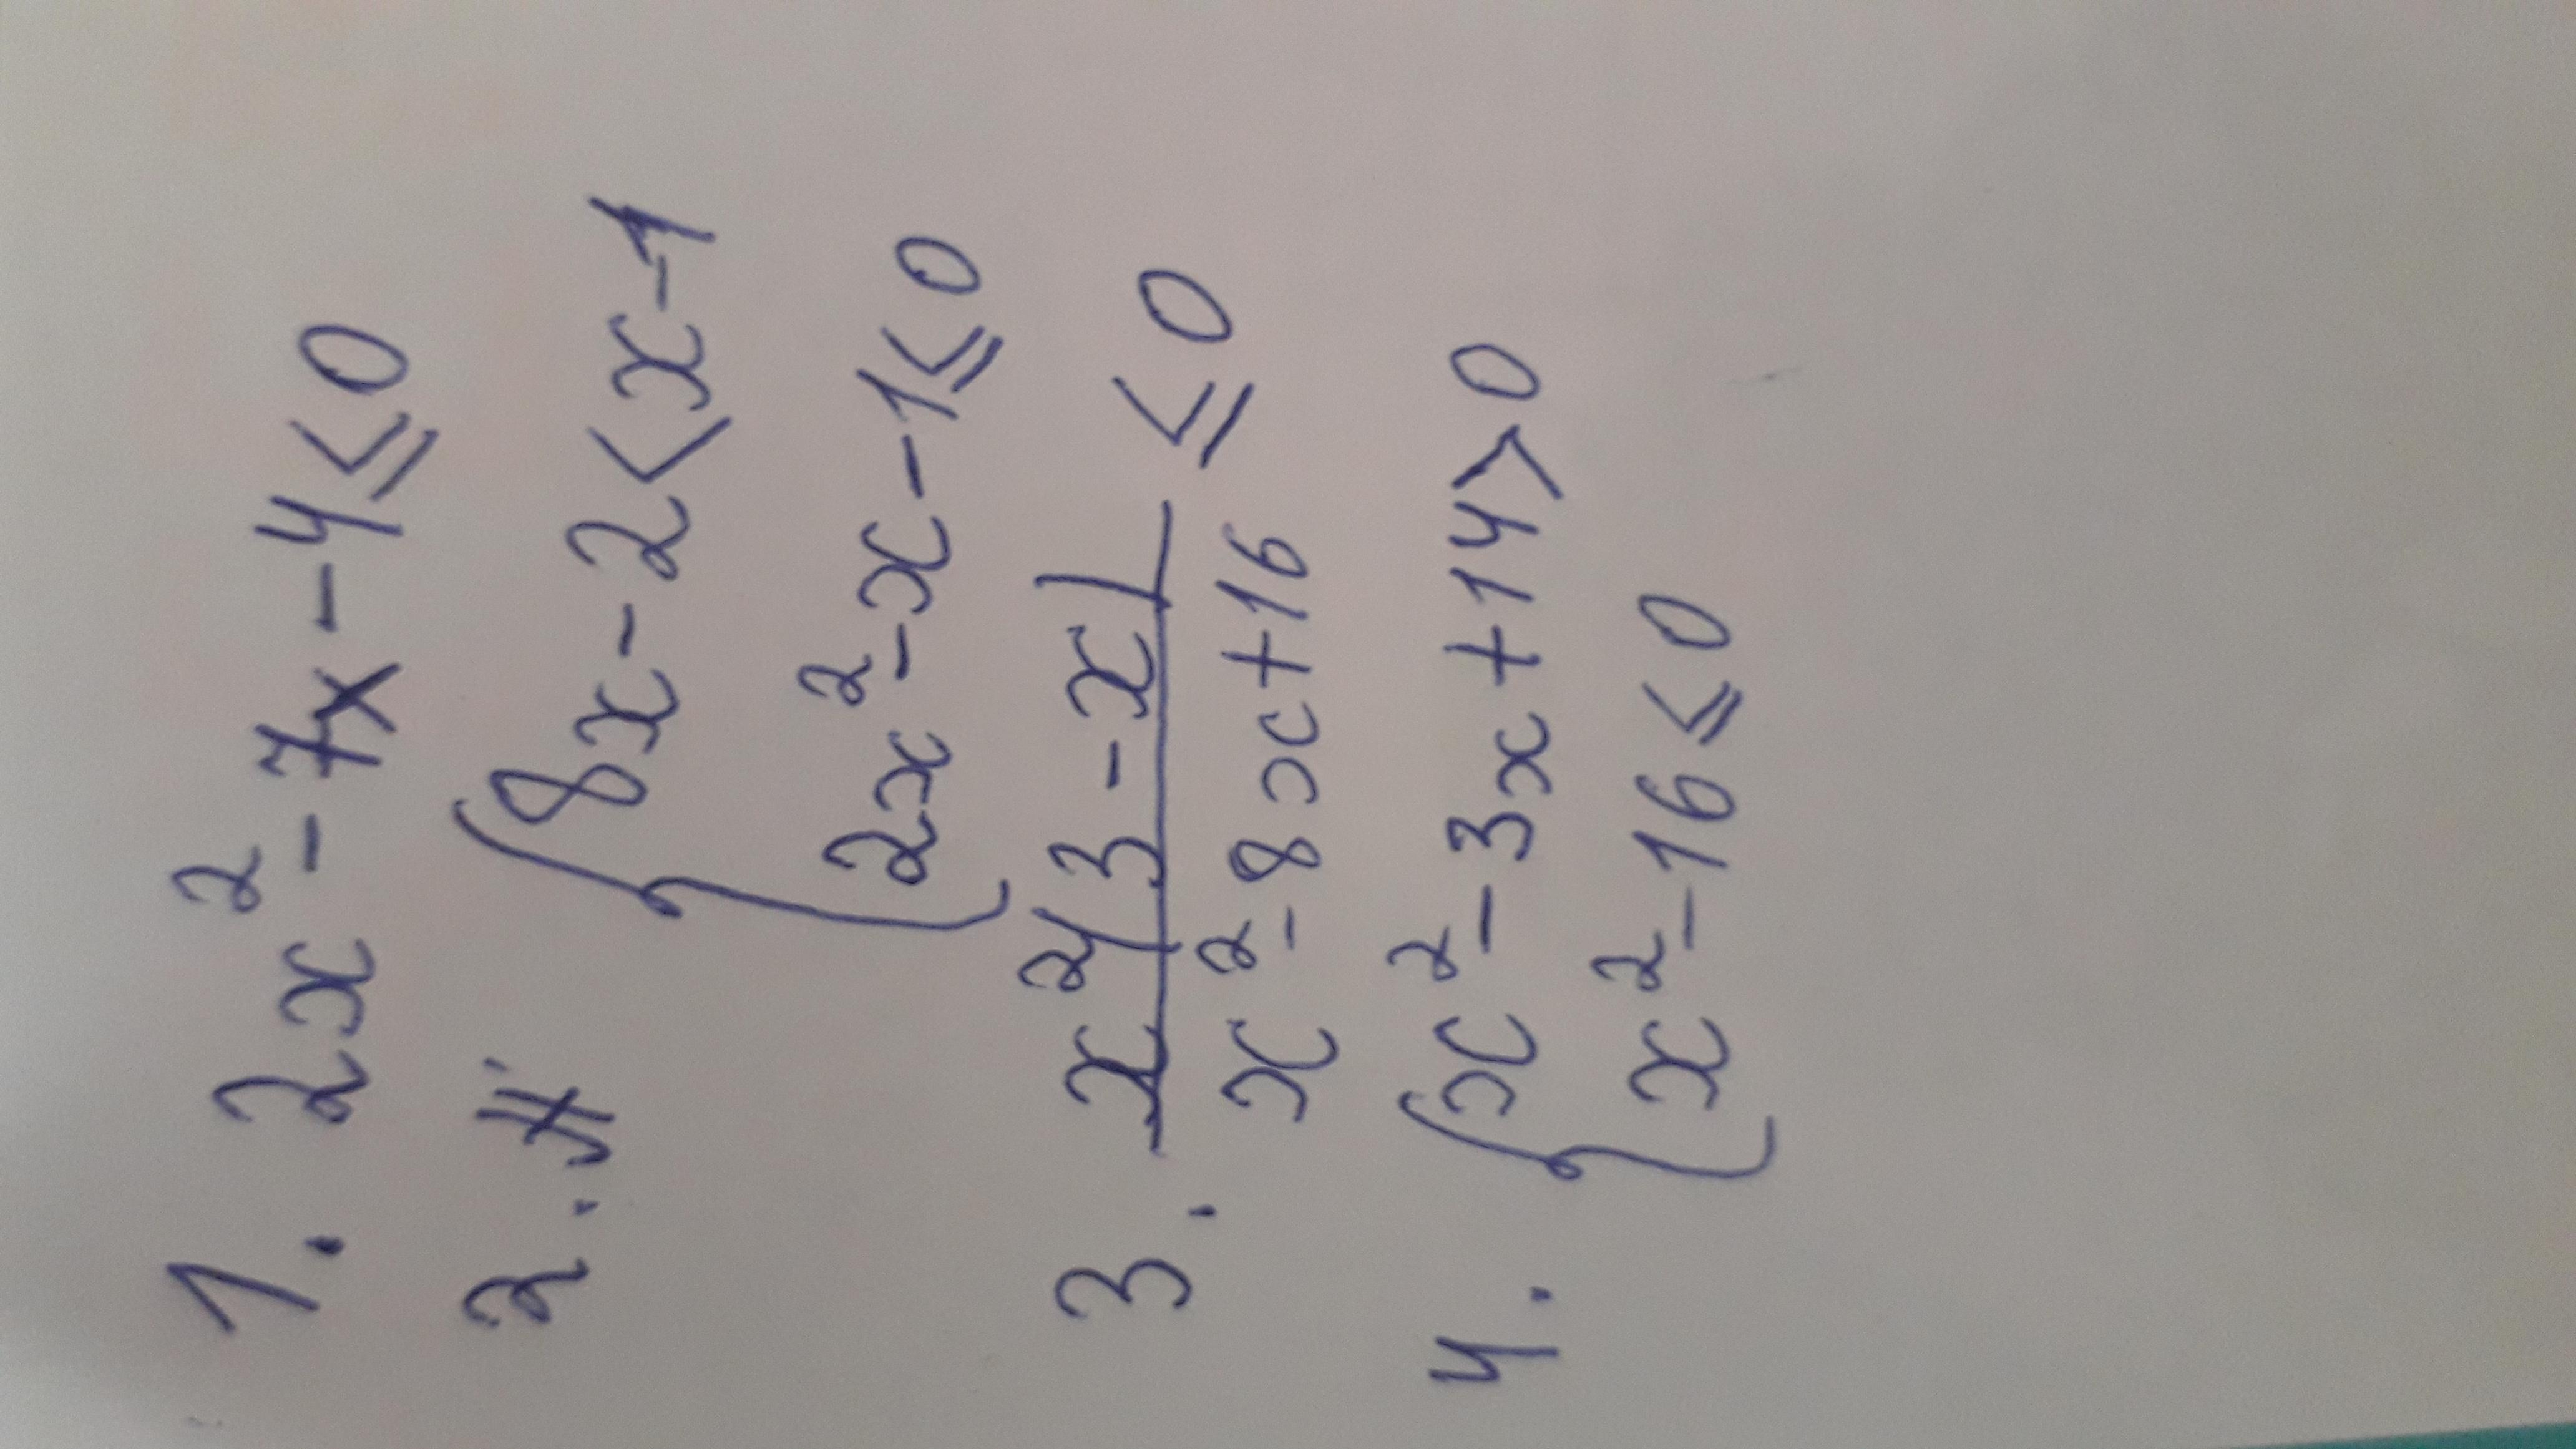 1. 2x²-7x-4≤0
2. {8x-2<x-1
2x²-x-1≤0
3. x²(3-x)/x²-8x+16 ≤0
4. {x²-3x+14>0
x²-16≤0